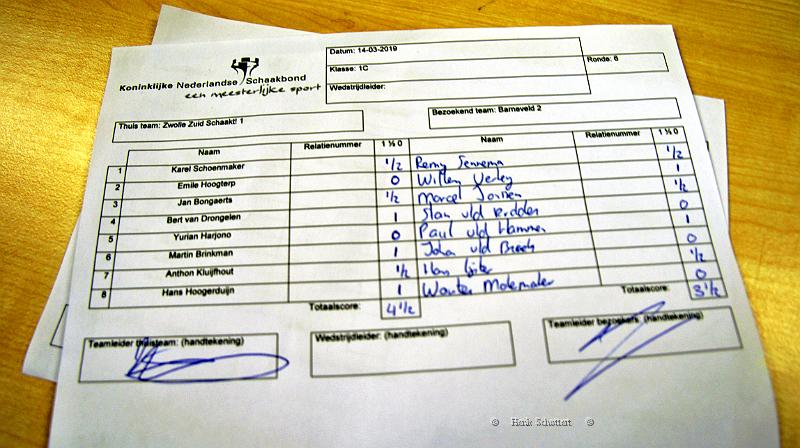 Koninklijke Nederlandse Schaakbond
een meesterlijke sport
Datum: 14-03-2019
Klasse: 1C
Wedstrijdleider:
Ronde: 6
Thuis team: Zwolle Zuid Schaakt! 1
Bezoekend team: Barneveld 2
Naam Relatienummer 1 ½ 0 Naam Relatienummer 1 ½ 0
1 Karel Schoenmaker 1/2 Remy Sennema 1/2
2 Emile Hoogterp 0 Willem Verley 1
3 Jan Bongaerts 1/2 Marcel 1/2
4 Bert van Drongelen 1 Stan v/d 0
5 Yurian Harjono 0 Paul v/d Hammen 1
6 Martin Brinkman 1 Johan v/d 0
7 Anthon Kluijfhout 1/2 1/2
8 Hans Hoogerduijn 1 Wouter Molemaker 0
Totaalscore: 4 1/2 Totaalscore: 3 1/2
Teamleider thuisteam: (handtekening)
Wedstrijdleider: (handtekening)
Teamleider bezoekers: (handtekening)
© Henk Schuttert ©